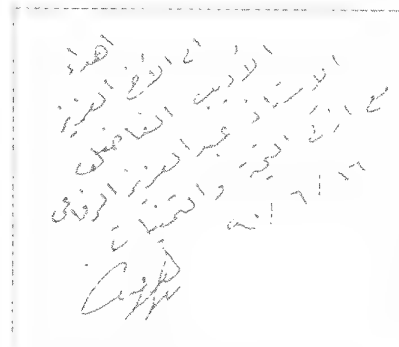 اهداء
الى الأخ العزيز
الأديب الفاضل
الاستاذ عبدالعزيز الرفاعي
مع ازكى التحية والتمنيات
٩٠/٦/١٦